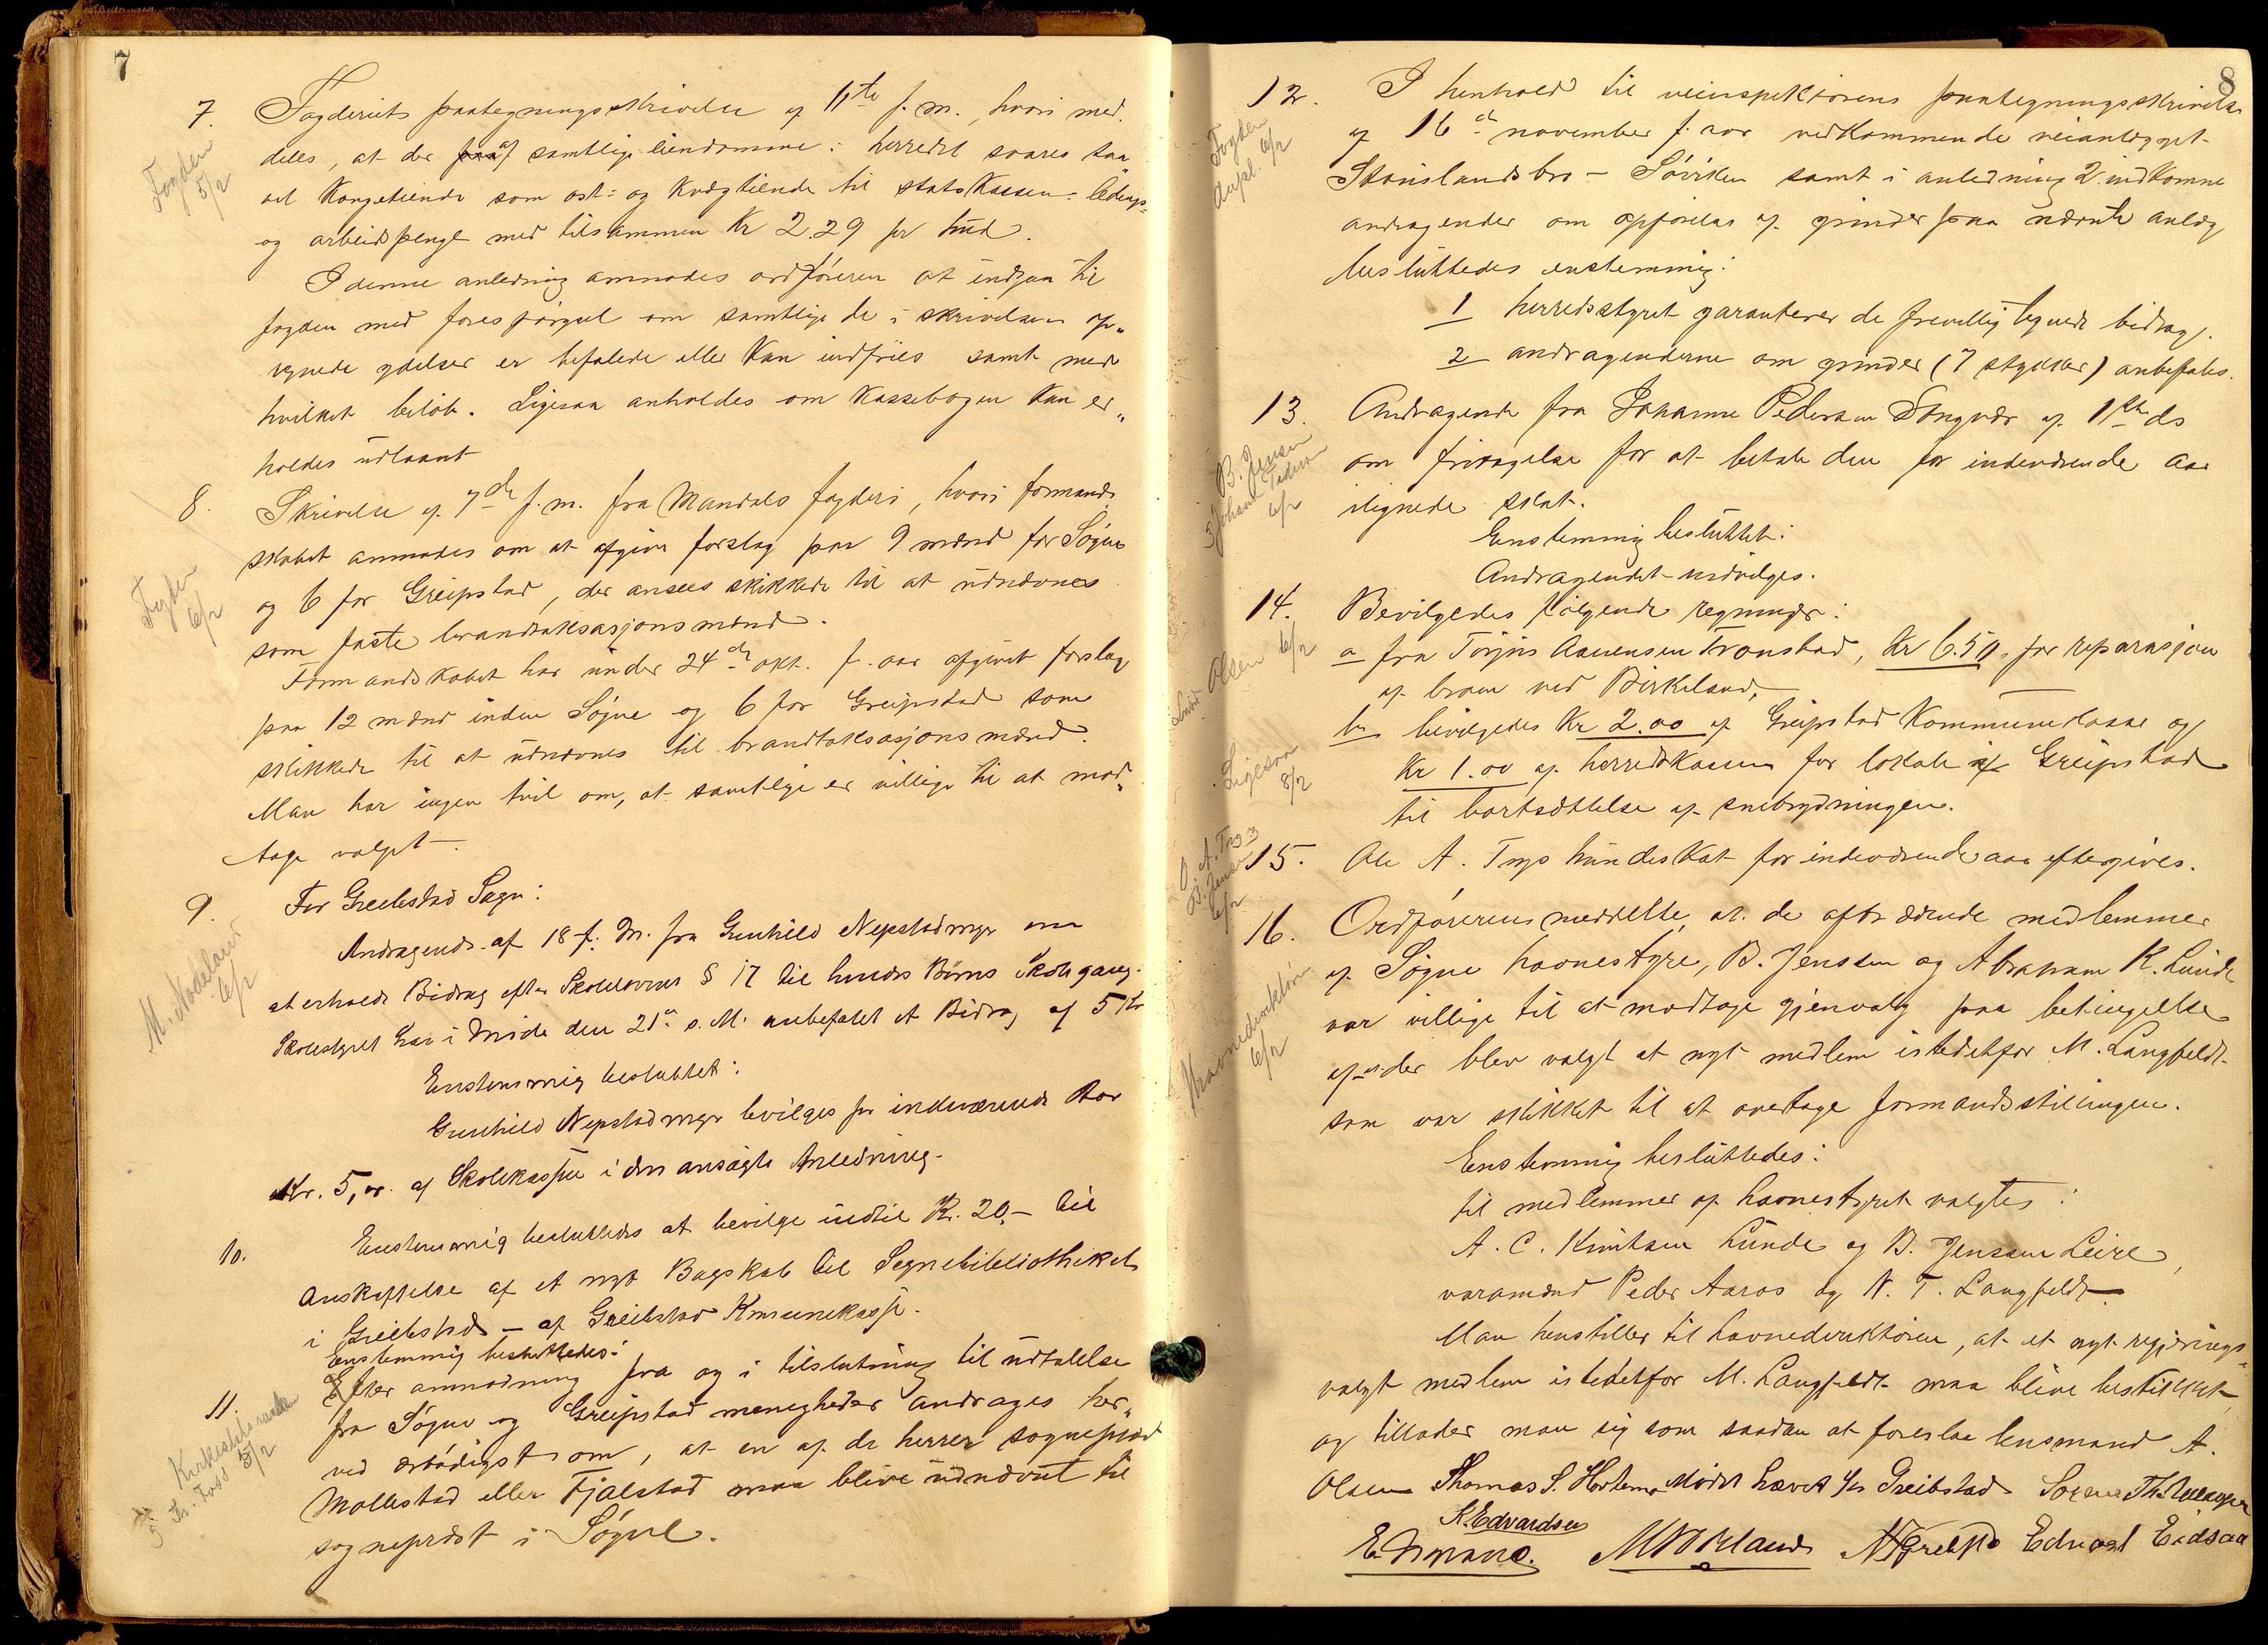 7
7. Fogderiets paategningsskrivelse af 11te f.m., hvori med-
deles, at der af samtlige eiendomme i herredet svares saa
vel Kongetiende som ost- og Kvægtiende til statskassen
og arbeidspenge med tilsammen Kr 2.29 pr hud.
I denne anledning anmodes ordføreren at indgaa til
fogden med forespørgsel om samtlige de i skrivelsen op-
regnede ydelser er befalede eller Kan indfries samt med
hvilket beløb. Ligesaa anholdes om Kassebogen Kan er-
holdes udlaant
Fogden
5/2
8. Skrivelse af 7de f.m. fra Mandals fogderi, hvori formand-
skabet anmodes om at afgive forslag paa 9 mænd for Søgne
og 6 for Greipstad, der ansees skikkede til at udnævnes
som faste brandtaksasjonsmænd.
Formandskabet har under 24de okt. f. aar afgivet forslag
paa 12 mænd inden Søgne og 6 for Greipstad som
skikkede til at udnævnes til brandtaksasjonsmænd.
Man har ingen tvil om, at samtlige er villige til at mod-
tage valget.
Fogden
6/2
9. For Greibstad Sogn:
Andragende af 18 f. M. fra Gunhild Nepstadmyr om
at erholde Bidrag efter Skoleloven § 17 til hendes Børns Skolegang.
Skolestyret har i Møde den 21de s. M. anbefalet et Bidrag af 5 Kr
Enstemmig besluttet:
Gunhild Nepstadmyr bevilges for indeværende Aar
Kr. 5,00 af Skolekassen i den ansøgte Anledning.
M. Nodeland
6/2
10. Enstemmig besluttedes at bevilge indtil Kr. 20,- til
Anskaffelse af et nyt Bogskab til Sognebibliotheket
i Greibstad - af Greibstad Kmunekasse.
Enstemmig besluttedes:
11. Efter anmodning fra og i tilslutning til udtalelse
fra Søgne og Greipstad menigheder andrages her-
ved ærbødigst om, at en af de herrer sogneprest
Mollestad eller Fjalstad maa blive udnævnt til
sogneprest i Søgne.
5/2
8
12. I henhold til veiinspektørens paategningsskrivelse
af 16de november f. aar vedkommende veianlægget
Stauslandsbro - Søviken samt i anledning 2 indkomne
andragender om opførelse af grinder paa nævnte anlæg
besluttedes enstemmig:
1 herredsstyret garanterer de frivillig tegnede bidrag.
2 andragenderne om grinder (7 stykker) anbefales.
Fogden
dupl. 6/2
13. Andragende fra Johanne Pedersen Songvår af 1ste ds
om fritagelse for at betale den for indeværende aar
ilignede skat.
Enstemmig besluttet:
Andragendet indvilges.
B. Jensen
6/2
14. Bevilgedes følgende regninger:
a fra Torjus Aanensen Tronstad, Kr 6.50 for reparasjon
af broen ved Birkeland,
b bevilgedes Kr 2.00 af Greipstad Kommunekasse og
Kr 1.00 af herredskassen for lokale i Greipstad
til bortsættelse af snebrydningen.
Olsen 6/2
Ligesaa
8/2
15. Ole A. Tys hundeskat for indeværende aar eftergives.
6/2
16. Ordføreren meddelte, at de aftrædende medlemmer
af Søgne havnestyre, B. Jenssen og Abraham K. Lunde
var villige til at modtage gjenvalg paa betingelse
af at der blev valgt et nyt medlem istedetfor M. Langfeldt
som var skikket til at overtage formandsstillingen.
Enstemmig besluttedes:
til medlemmer af havnestyret valgtes:
A. C. Knutsen Lunde og B. Jenssen Leire,
varamænd Peder Aaros og N. T. Langfeldt.
Man henstiller til havnedirektøren, at et nyt regjerings-
valgt medlem istedetfor M. Langfeldt maa blive beskikket
og tillader man sig som saadan at foreslaa lensmand A.
Olsen
Havnedirektøren
6/2
Mødet hævet
Thomas S. Hortemo
K. Edvardsen
Edvart Eidsaa